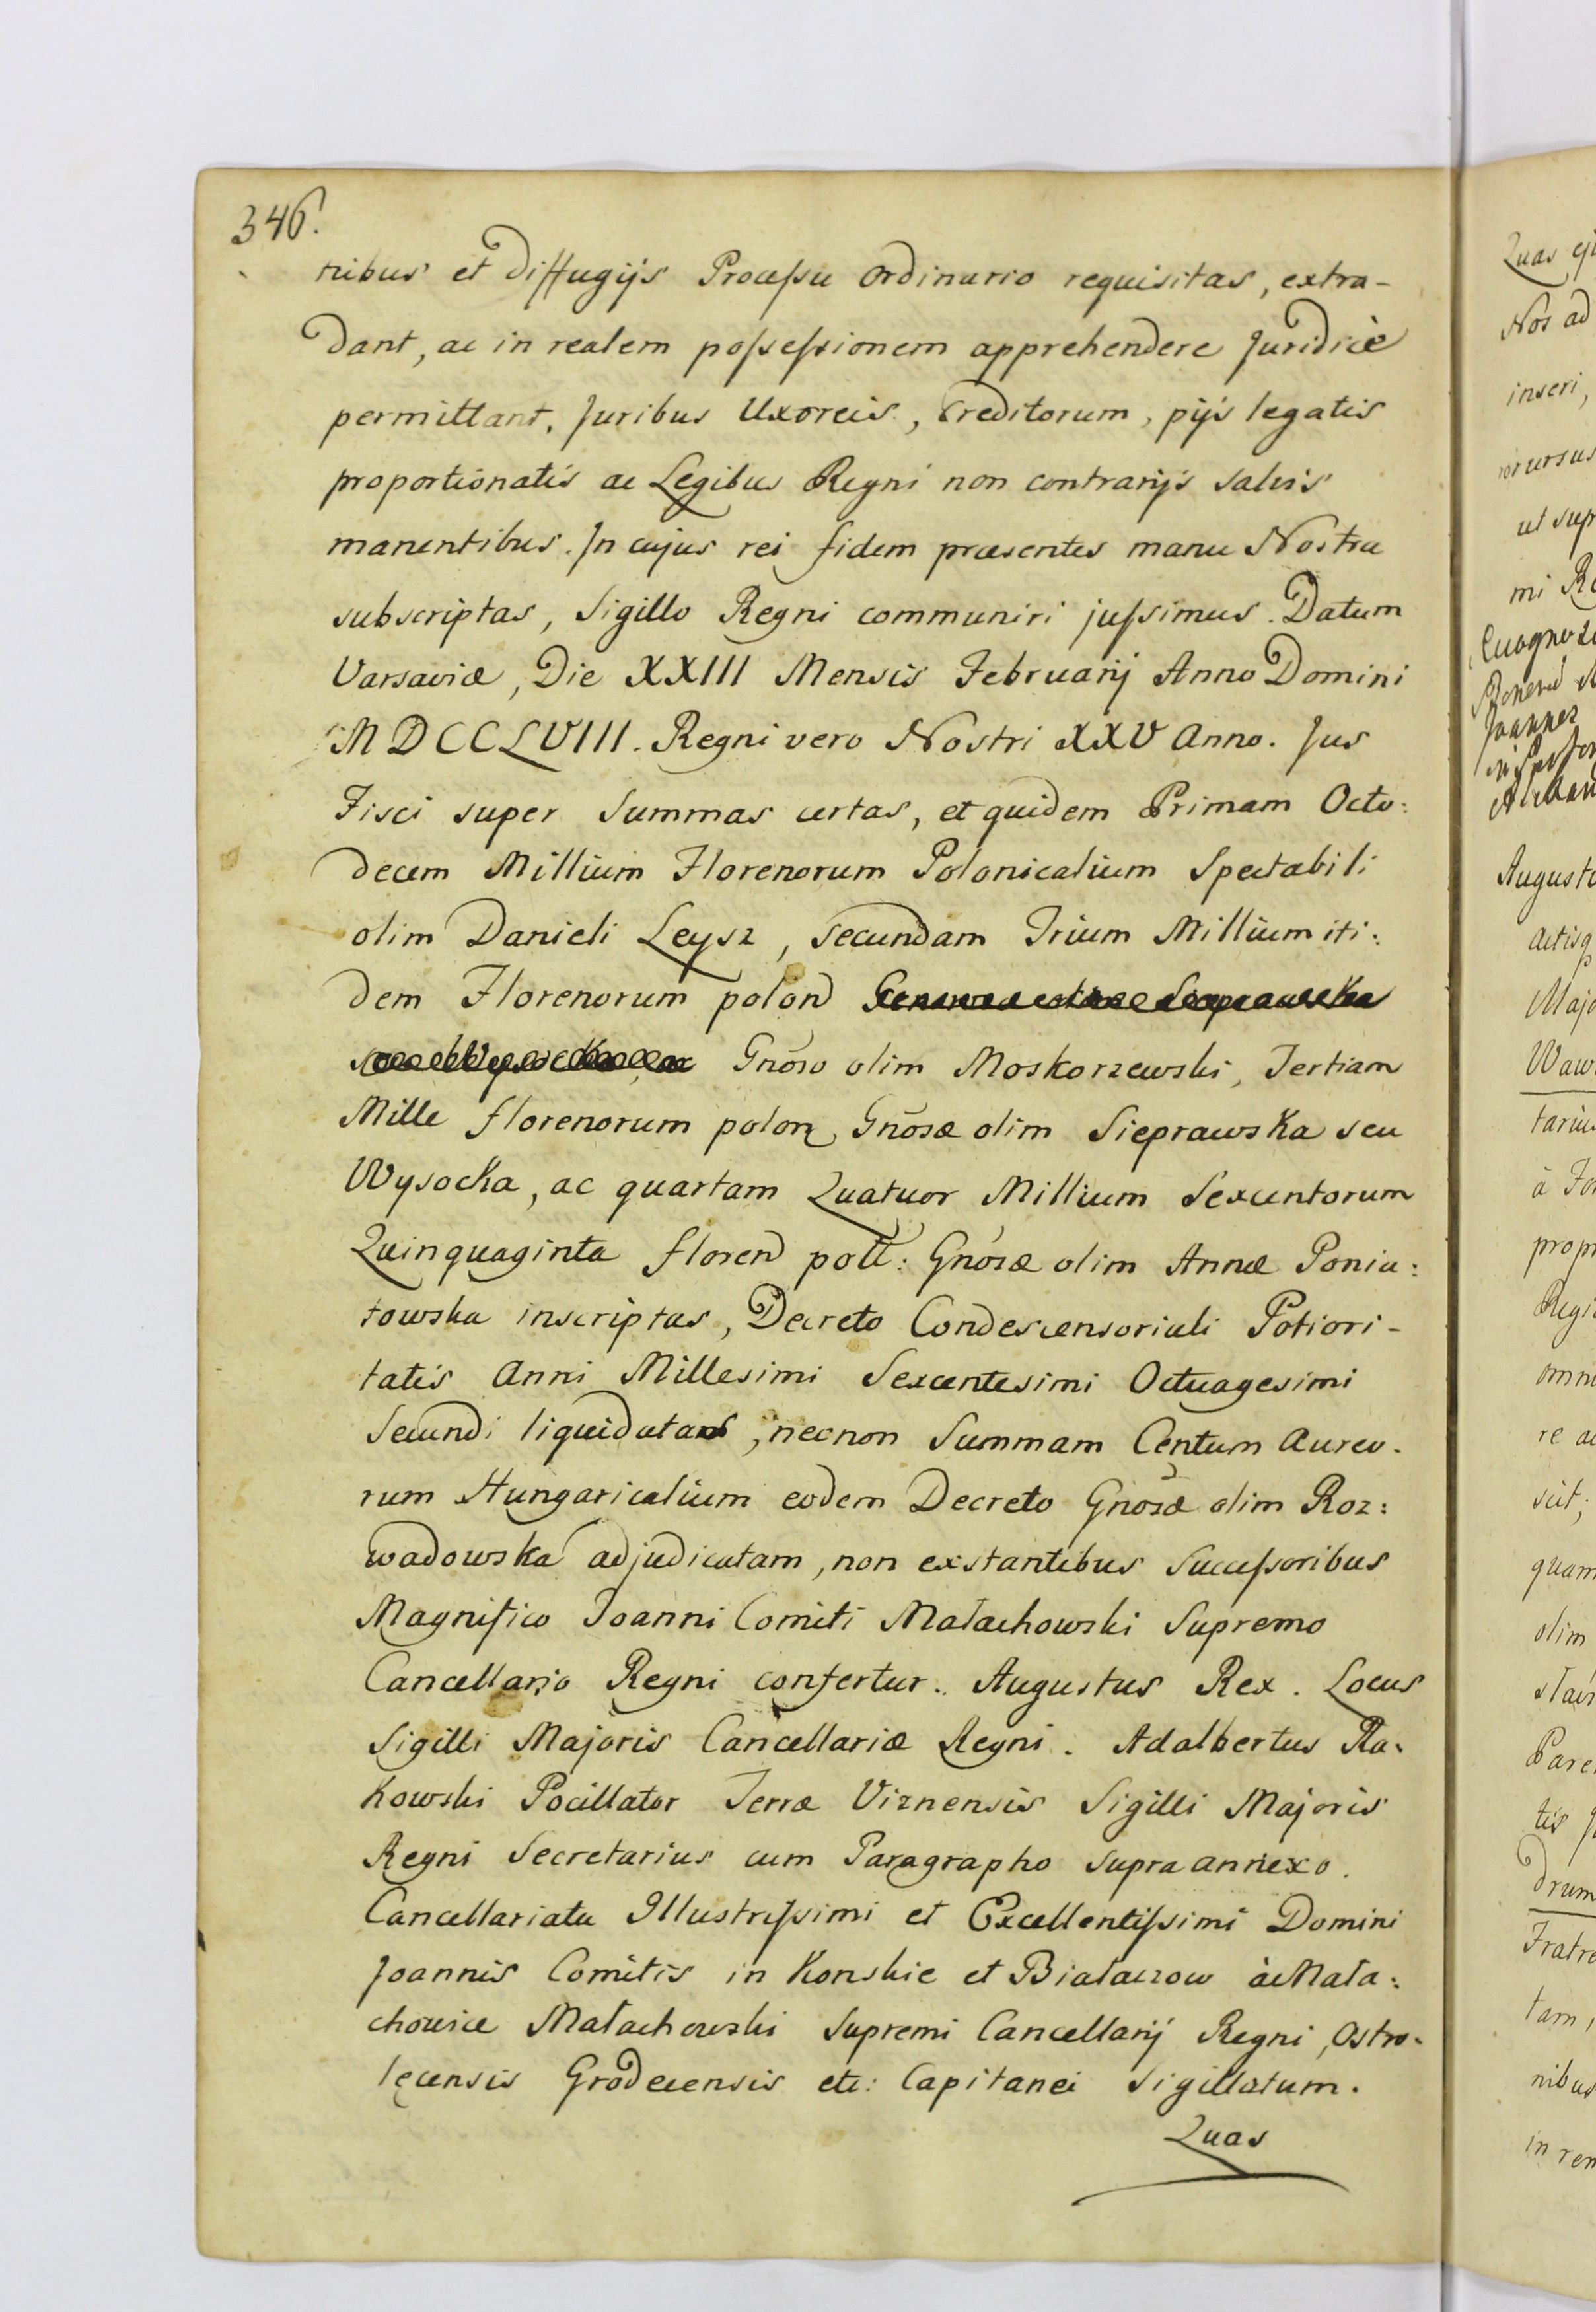 346.
tribus et diffugijs Processu ordinario requisitas, extra-
dant, ac in realem possessionem apprehendere Juridicè
permittant, Juribus Uxoreis, Creditorum, pijs legatis
proportionatis ac Legibus Regni non contrarijs salvis
manentibus. In cujus rei fidem præsentes manu Nostra
subscriptas, Sigillo Regni communiri jussimus. Datum
Varsaviæ, Die XXIII Mensis Februarij Anno Domini
MDCCLVIII. Regni vero Nostri XXV Anno. Jus
Fisci super Summas certas, et quidem Primam Octo:
decem Millium Florenorum Polonicalium Spectabili
olim Danieli Leysz, secundam Trium Millium iti:
dem Florenorum polon
Gnoso olim Moskorzewski, Tertiam
Mille florenorum polon Gnosæ olim Sieprawska seu
Wysocka, ac quartam Quatuor Millium Sexcentorum
Quinquaginta floren poll: Gnosæ olim Annæ Ponia:
towska inscriptas, Decreto Condescensoriali Potiori-
tatis Anni Millesimi Sexcentesimi Octuagesimi
Secundi liquidatas, necnon Summam Centum Aureo-
rum Hungaricalium eodem Decreto Gnosæ olim Roz:
wadowska adjudicatam, non exstantibus Successoribus
Magnifico Joanni Comiti Małachowski Supremo
Cancellario Regni confertur. Augustus Rex. Locus
Sigilli Majoris Cancellariæ Regni. Adalbertus Ra-
kowski Pocillator Terræ Viznensis Sigilli Majoris
Regni Secretarius cum Paragrapho supra annexo.
Cancellariatu Illustrissimi et Excellentissimi Domini
Joannis Comitis in Konskie et Białaczow à Mała:
chowice Małachowski Supremi Cancellarij Regni, Ostro-
lęcensis Grodecensis etc: Capitanei Sigillatum.
Quas
Quas
Nos ad
inseri,
ut sup
mi Re
Joannes
Augusto
actisq
Majo
Waw
tariu
à Fo
prop
Regi
omni
re ac
sut;
quam
olim
Pare
tis
drum
Fratre
tam,
nibus
in rem